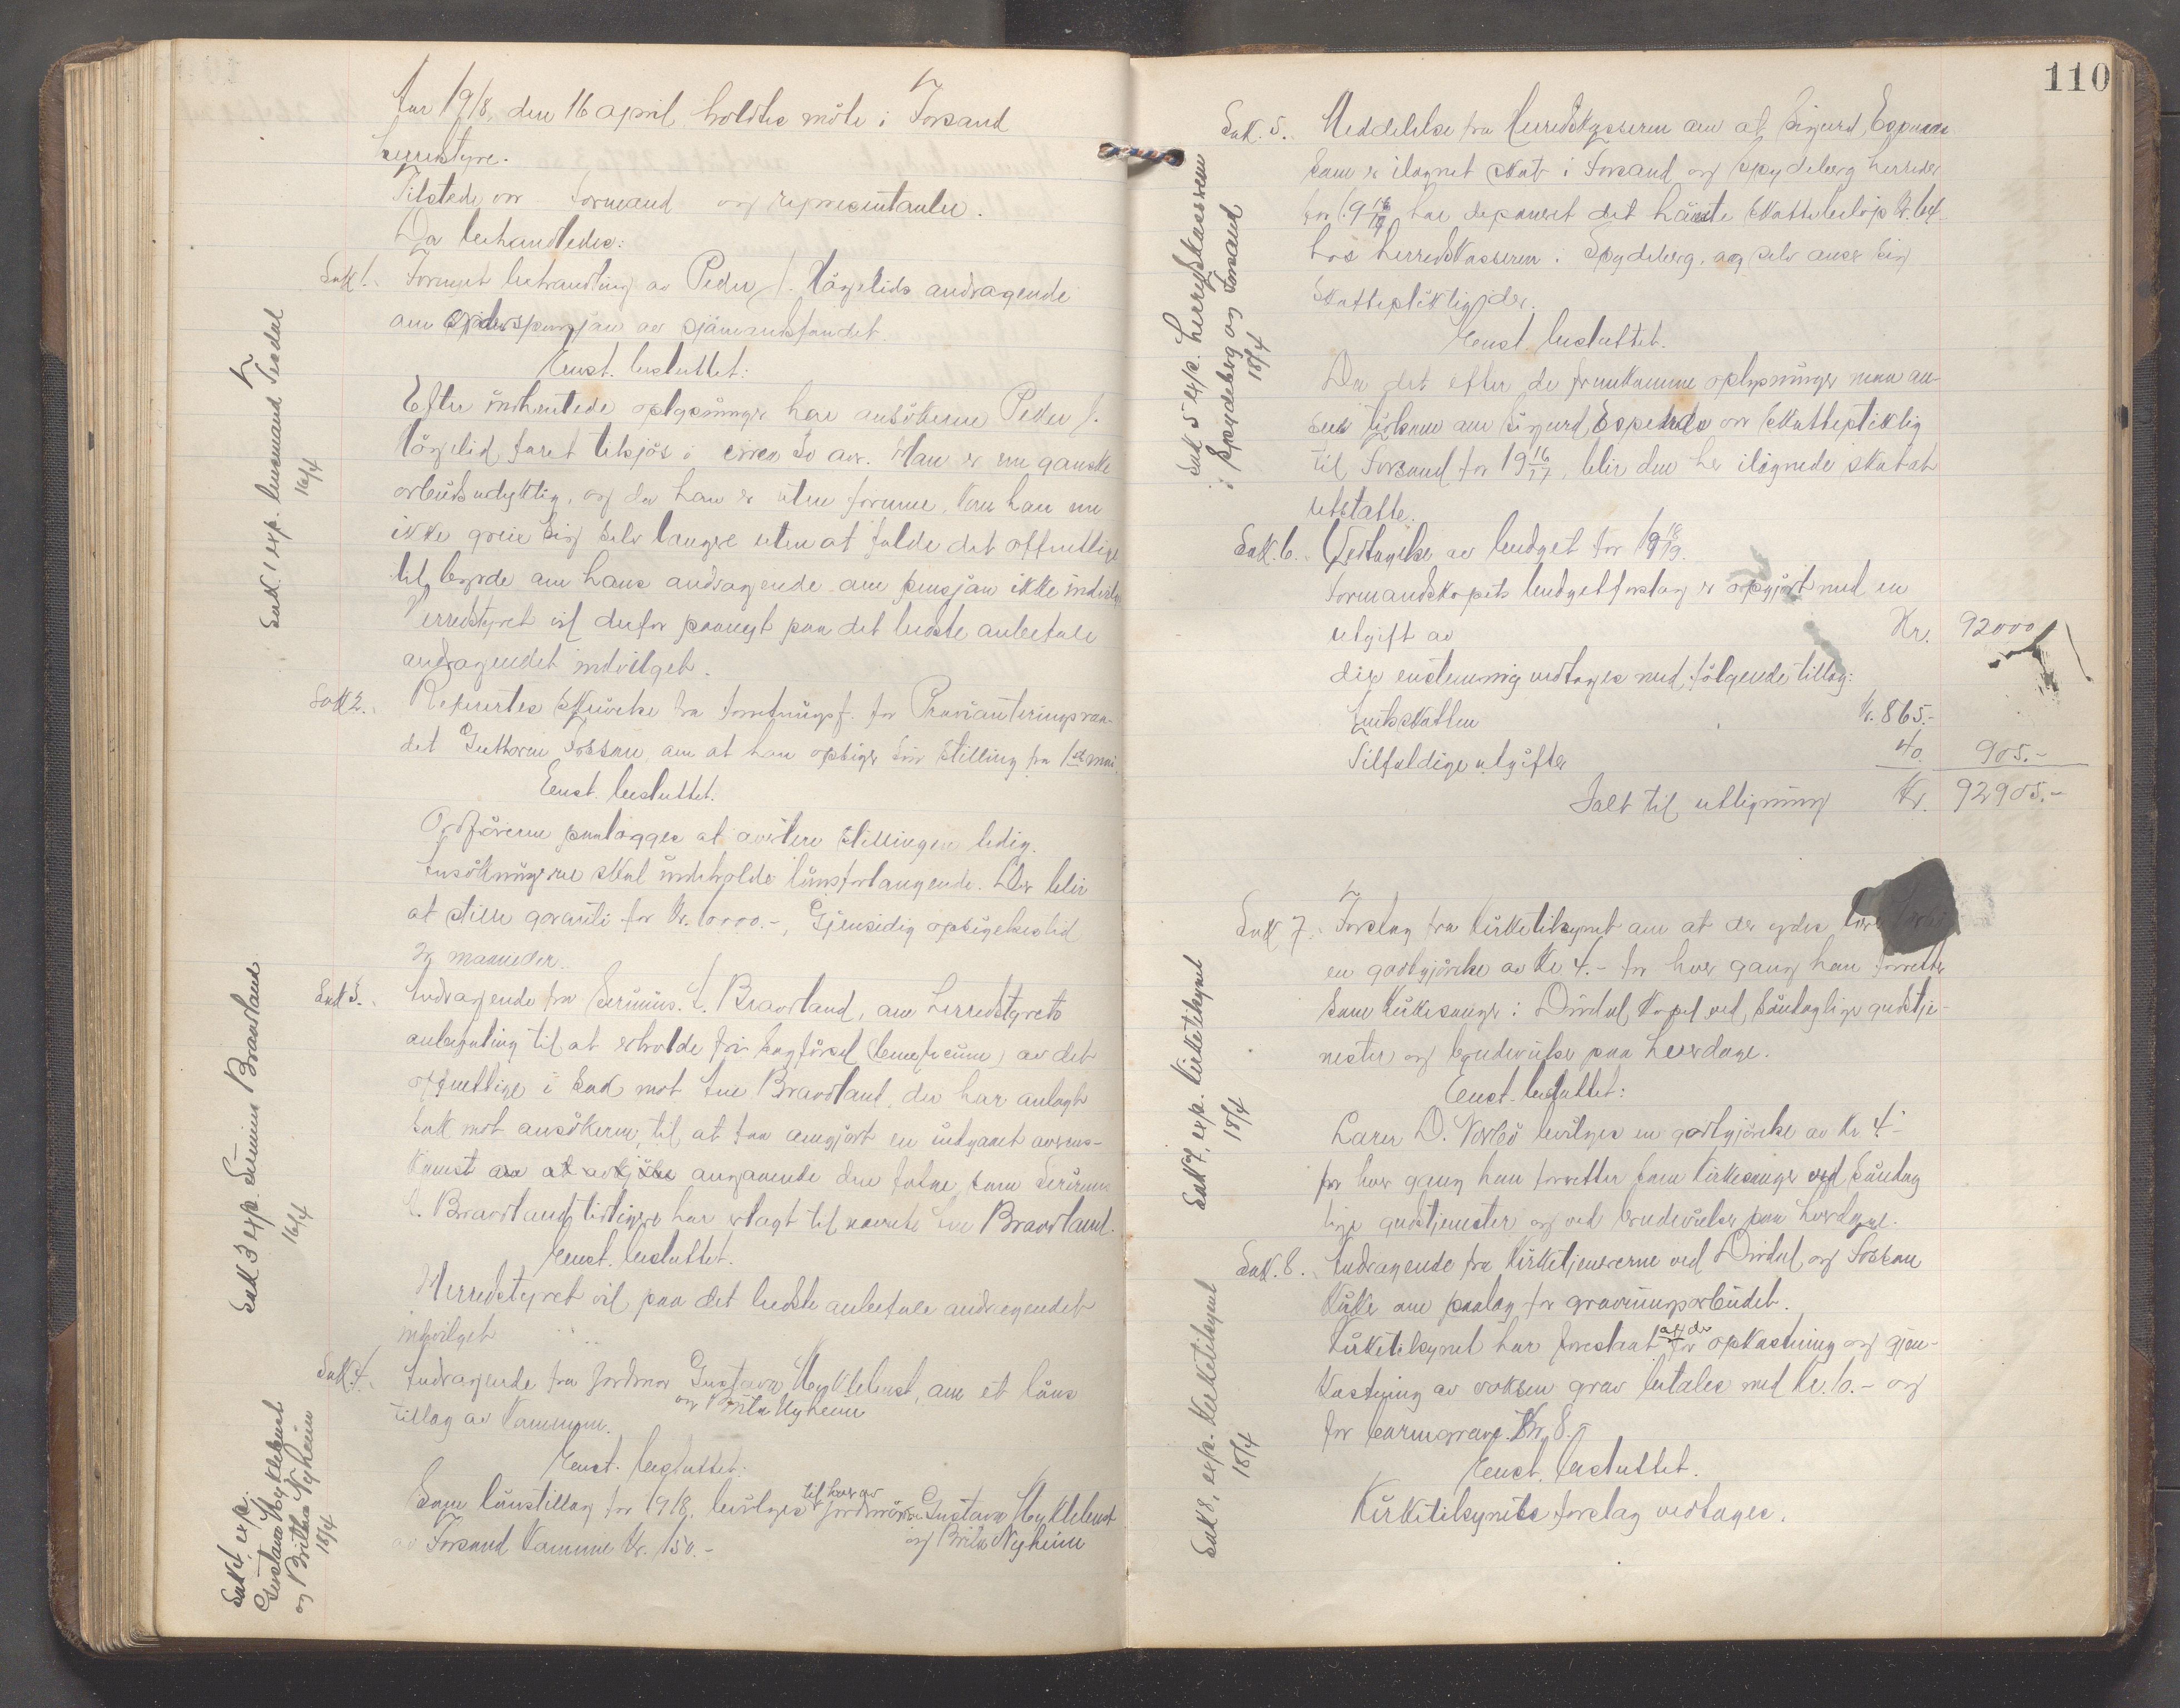 Aar 1918, den 16 april holdtes møte i Forsand
herredstyre.
Tilstede var formand og representanter.
Da behandledes:
Sak 1. Fornyet behandling av Peder J. Høgelids andragende
om alderspensjon av sjømandsfondet.
Enst. besluttet:
Efter indhentede oplysninger har ansøkeren Peder J.
Høgelid faret tilsjøs i circa 30 aar. Han er nu ganske
arbeidsudyktig, og da han er uten formue, kan han nu
ikke greie sig selv længre uten at falde det offentlige
til byrde om hans andragende om pensjon ikke indvilges
Herredstyret vil derfor paanyt paa det bedste anbefale
andragendet indvilget.
Sak 2. Refertes skrivelse fra forretningsf. for Provianteringsraa-
det Guthorm Fossan, om at han opsiger sin stilling fra 1ste mai.
Enst. besluttet.
Ordføreren paalægges at avertere stillingen ledig.
Ansøkningerne skal indeholde lønsforlangende. Der blir
at stille garanti for Kr. 10000.-, Gjensidig opsigelsestid
3 maaneder.
Sak 3. Andragende fra Serinius L. Bravoland, om herredstyrets
anbefaling til at erholde fri sagførsel (beneficium) av det
offentlige i sak mot Bravoland, der har anlagt
sak mot ansøkeren, til at faa omgjort en indgaaet overens-
komst angaaende den som Serinius
L. Bravoland tidligere har erlagt til nævnte Bravoland.
Enst. besluttet.
Herredstyret vil paa det bedste anbefale andragendet
indvilget
Sak 4. Andragende fra Jordmor Gustava Myklebust, om et løns
og Brita Nyheim
tillæg av kommunen.
Enst. besluttet:
Som lønstillæg for 1918 bevilges til hver av jordmødrene Gustava Myklebust
av Forsand kommune Kr. 150.- og Brita Nyheim
Sak 1 exp. lensmand Tesdal
16/4
Sak 3 exp. Serinius Bravoland
16/4
Sak 4 exp.
Gustava Myklebust
og Britha Nyheim
18/4
110
Sak. 5. Meddelelse fra Herredskassereren om at Sigurd Espedal
som er ilignet skat i Forsand og Spydeberg herreder
for har deponeret det høieste skattebeløp
hos herredskassereren i Spydeberg, og selv anser sig
skattepliktig der.
Enst. besluttet.
Da det efter de fremkomne oplysninger maa an-
sees tvilsom om Sigurd Espedal er skattepliktig
til Forsand for 1916/17, blir den her ilignede skat at
utsætte.
Sak. 6. Vedtagelse av budget for 1918/19.
Formandskapets budgetforslag er opgjørt med en
utgift av Kr. 92000
der enstemmig vedtages med følgende tillæg:
Amtsskatten Kr. 865.-
Tilfældige utgifter 40. 905.-
Ialt til utligning Kr. 92905.-
Sak 7. Forslag fra Kirketilsynet om at der ydes lærer
en godtgjørelse av Kr 4.- for hver gang han forretter
som Kirkesanger i Dirdal Kapel ved søndaglige gudstje-
nester og brudevielse paa hverdage.
Enst. besluttet:
Lærer O. bevilges en godtgjørelse av Kr. 4.-
for hver gang han forretter som kirkesanger ved søndag
lige gudstjenester og ved brudevielse paa hverdage.
Sak. 8. Andragende fra Kirketjenerne ved Dirdal og Fossan
Kirke om paalæg for gravningsarbeidet.
Kirketilsynet har foreslaat at der for opkastning og gjen-
kastning av voksen grav betales med Kr. 10.- og
for barnegrave Kr. 8.-
Enst. besluttet.
Kirketilsynets forslag vedtages.
Sak 5 exp. herredskassereren
i Spydeberg og Forsand
18/4
Sak 7, exp. Kirketilsynet
18/4
Sak 8, exp. Kirketilsynet
18/4